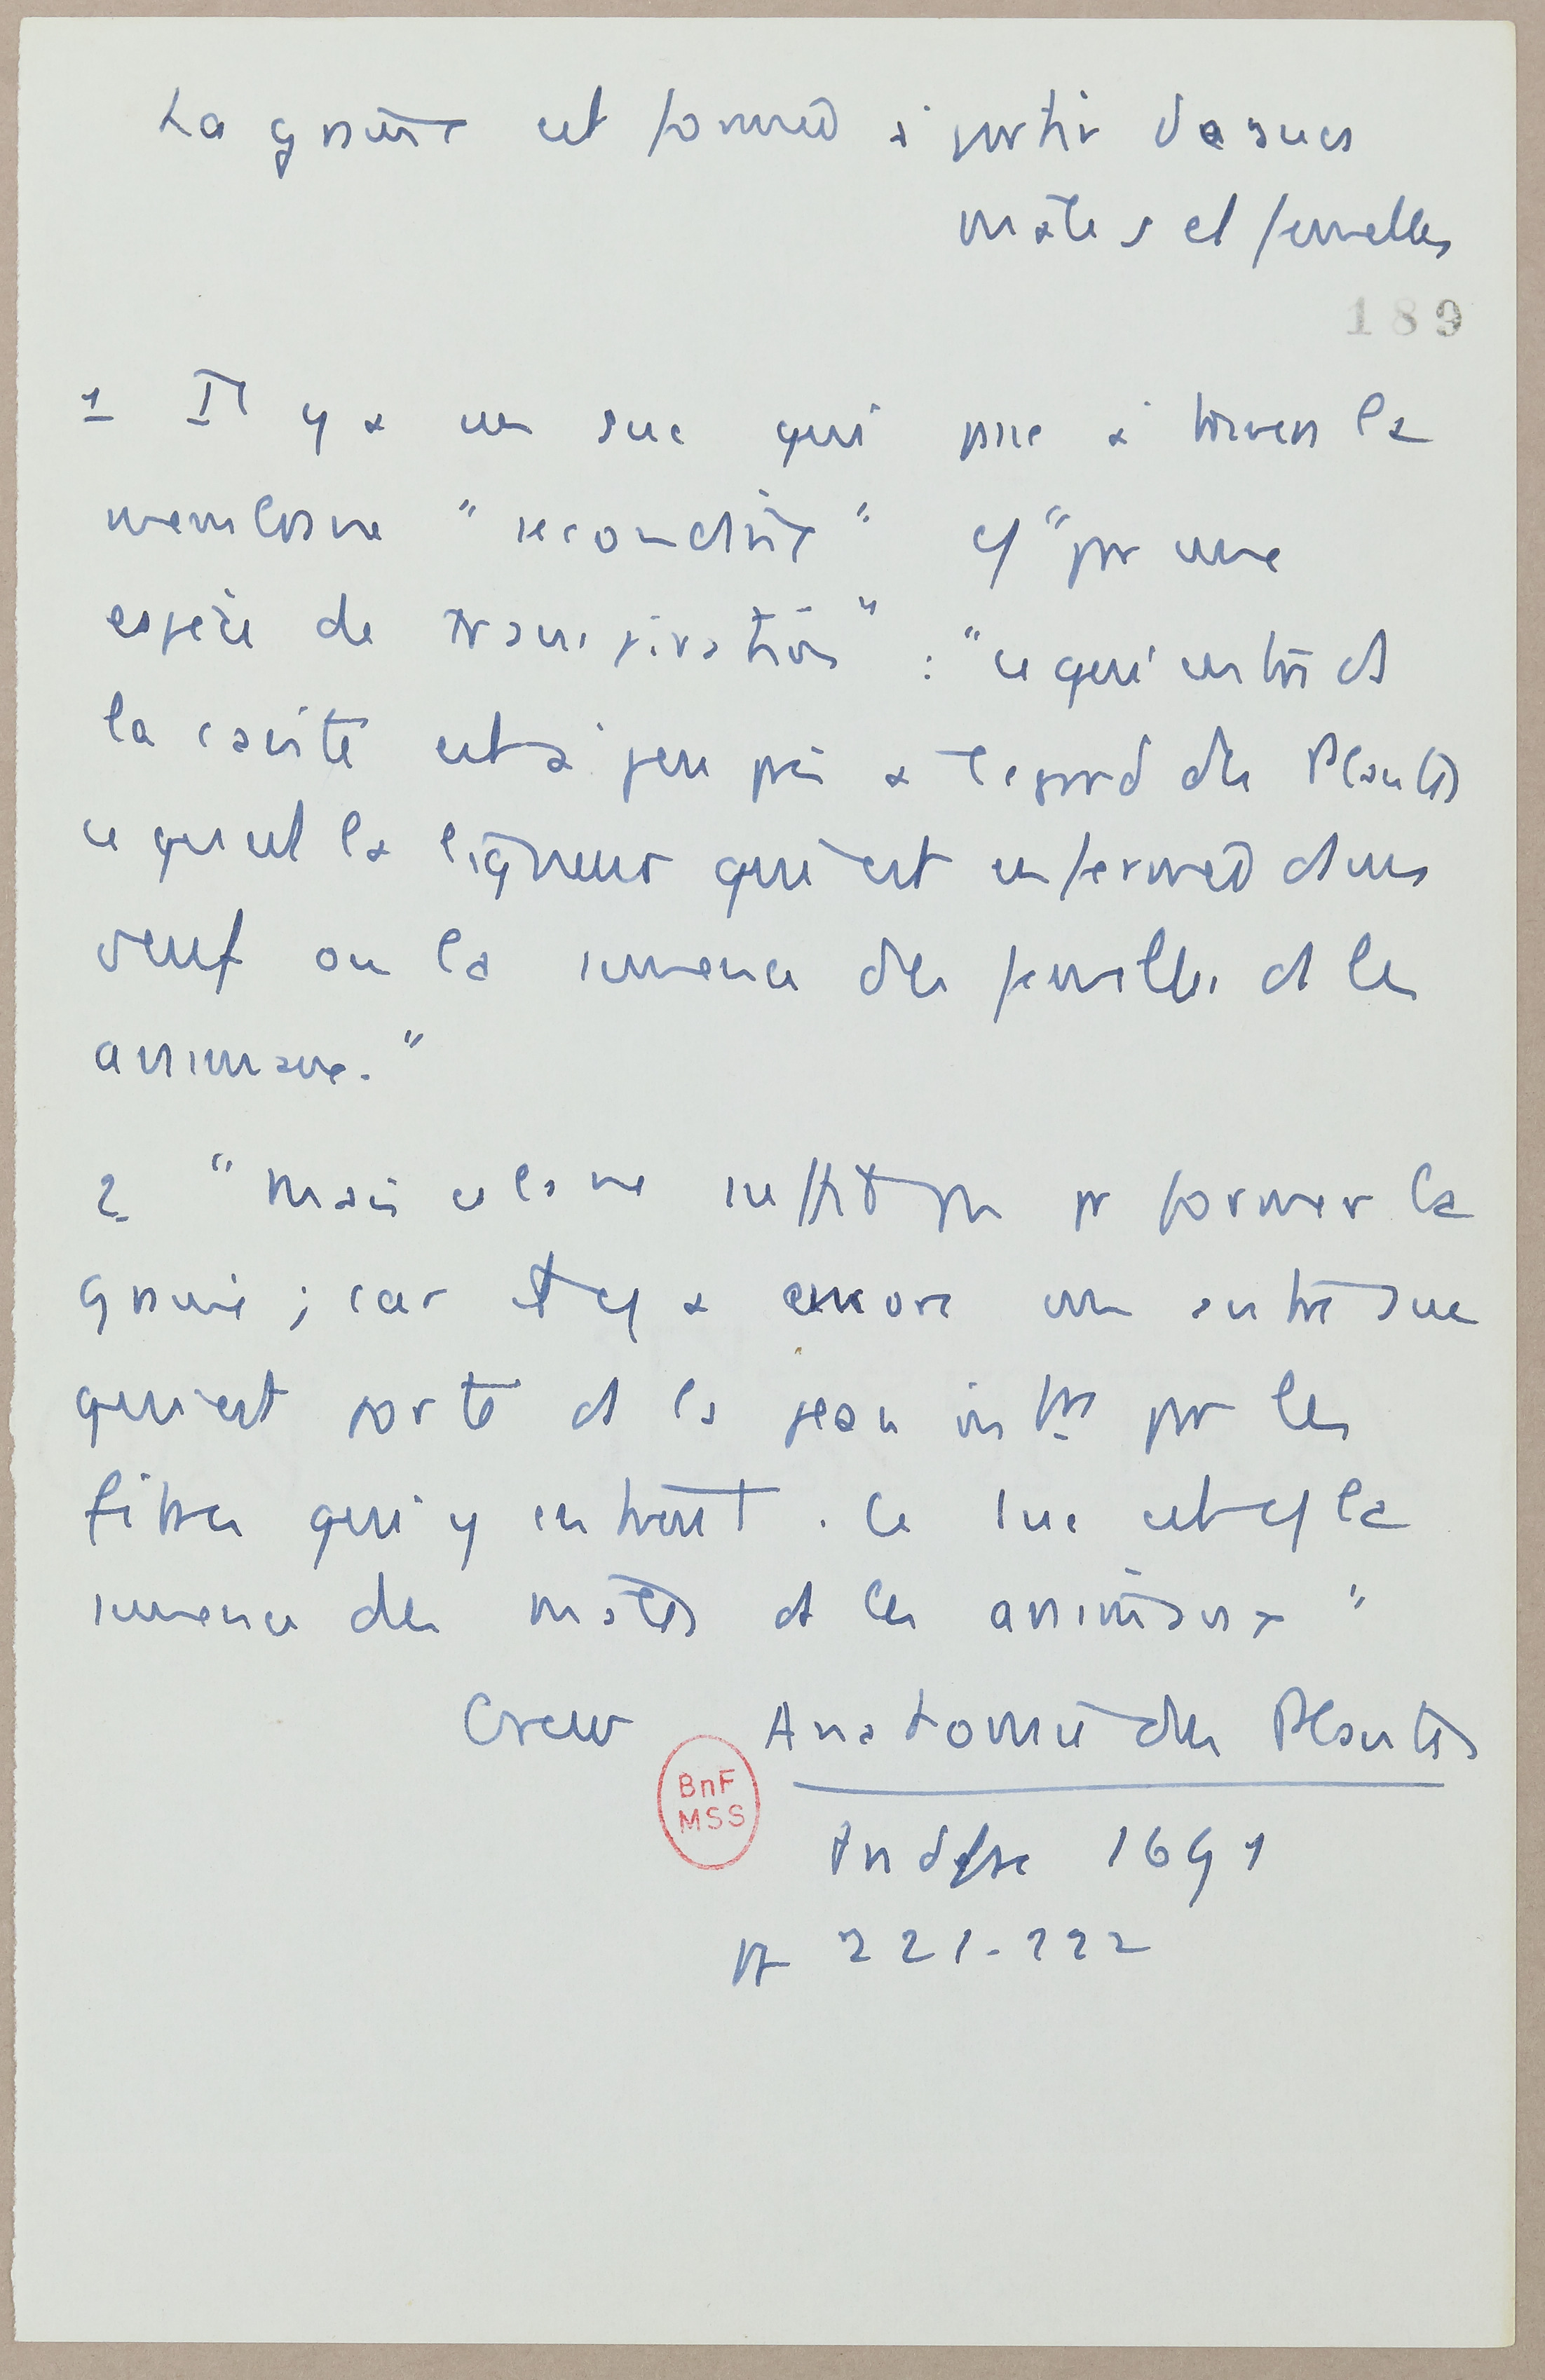 La graine est formée à partir de sucs
mâles et femelles
189
1 Il y a un suc qui passe à travers la
membrane " secondine " cf "par une
espèce de transpiration" : "ce qui entre ds
la cavité est à peu près à l'égard des Plantes
ce qu'est la liqueur qui est enfermée dans
l'œuf ou la semence des femelles ds les
animaux."
2 "Mais cela ne suffit pas pr former la
graine ; car il y a encore un autre suc
qui est porté ds la peau intre par les
fibres qui y entrent. Ce suc est cf la
semence des mâles ds les animaux "
Grew Anatomie des Plantes
BnF
MSS
1691
p 221-222